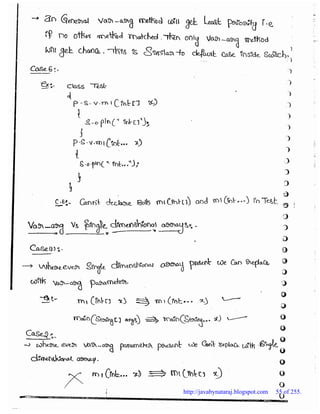 → In General var-arg method will get Least Priority i.e
if no other method matched. Then only var-arg method
will get chance. This is Similar to default case inside Switch.
Case 6:-
Ex:- class Test
{
P.S.V.m1(int[] x)
{
S.o.pln("int[]");
}
P.S.V.m1(int... x)
{
S.o.pln("int...");
}
}
C.E:- Can't declare Both m1(int[]) and m1(int...) in Test
Var-arg Vs Single dimensional arrays:-
Case(1):-
→ Wherever Single dimensional array present we Can Replace
with var-arg parameter.
Ex:- m1(int[] x) ⟹ m1(int... x) ✓
main(String[] args) ⟹ main(String... x) ✓
Case 2:-
→ Where ever var-arg parameter present we Can't replace with Single
dimensional array.
✗ m1(int... x) ⟹ m1(int[] x)
http://javabynataraj.blogspot.com 55 of 255.